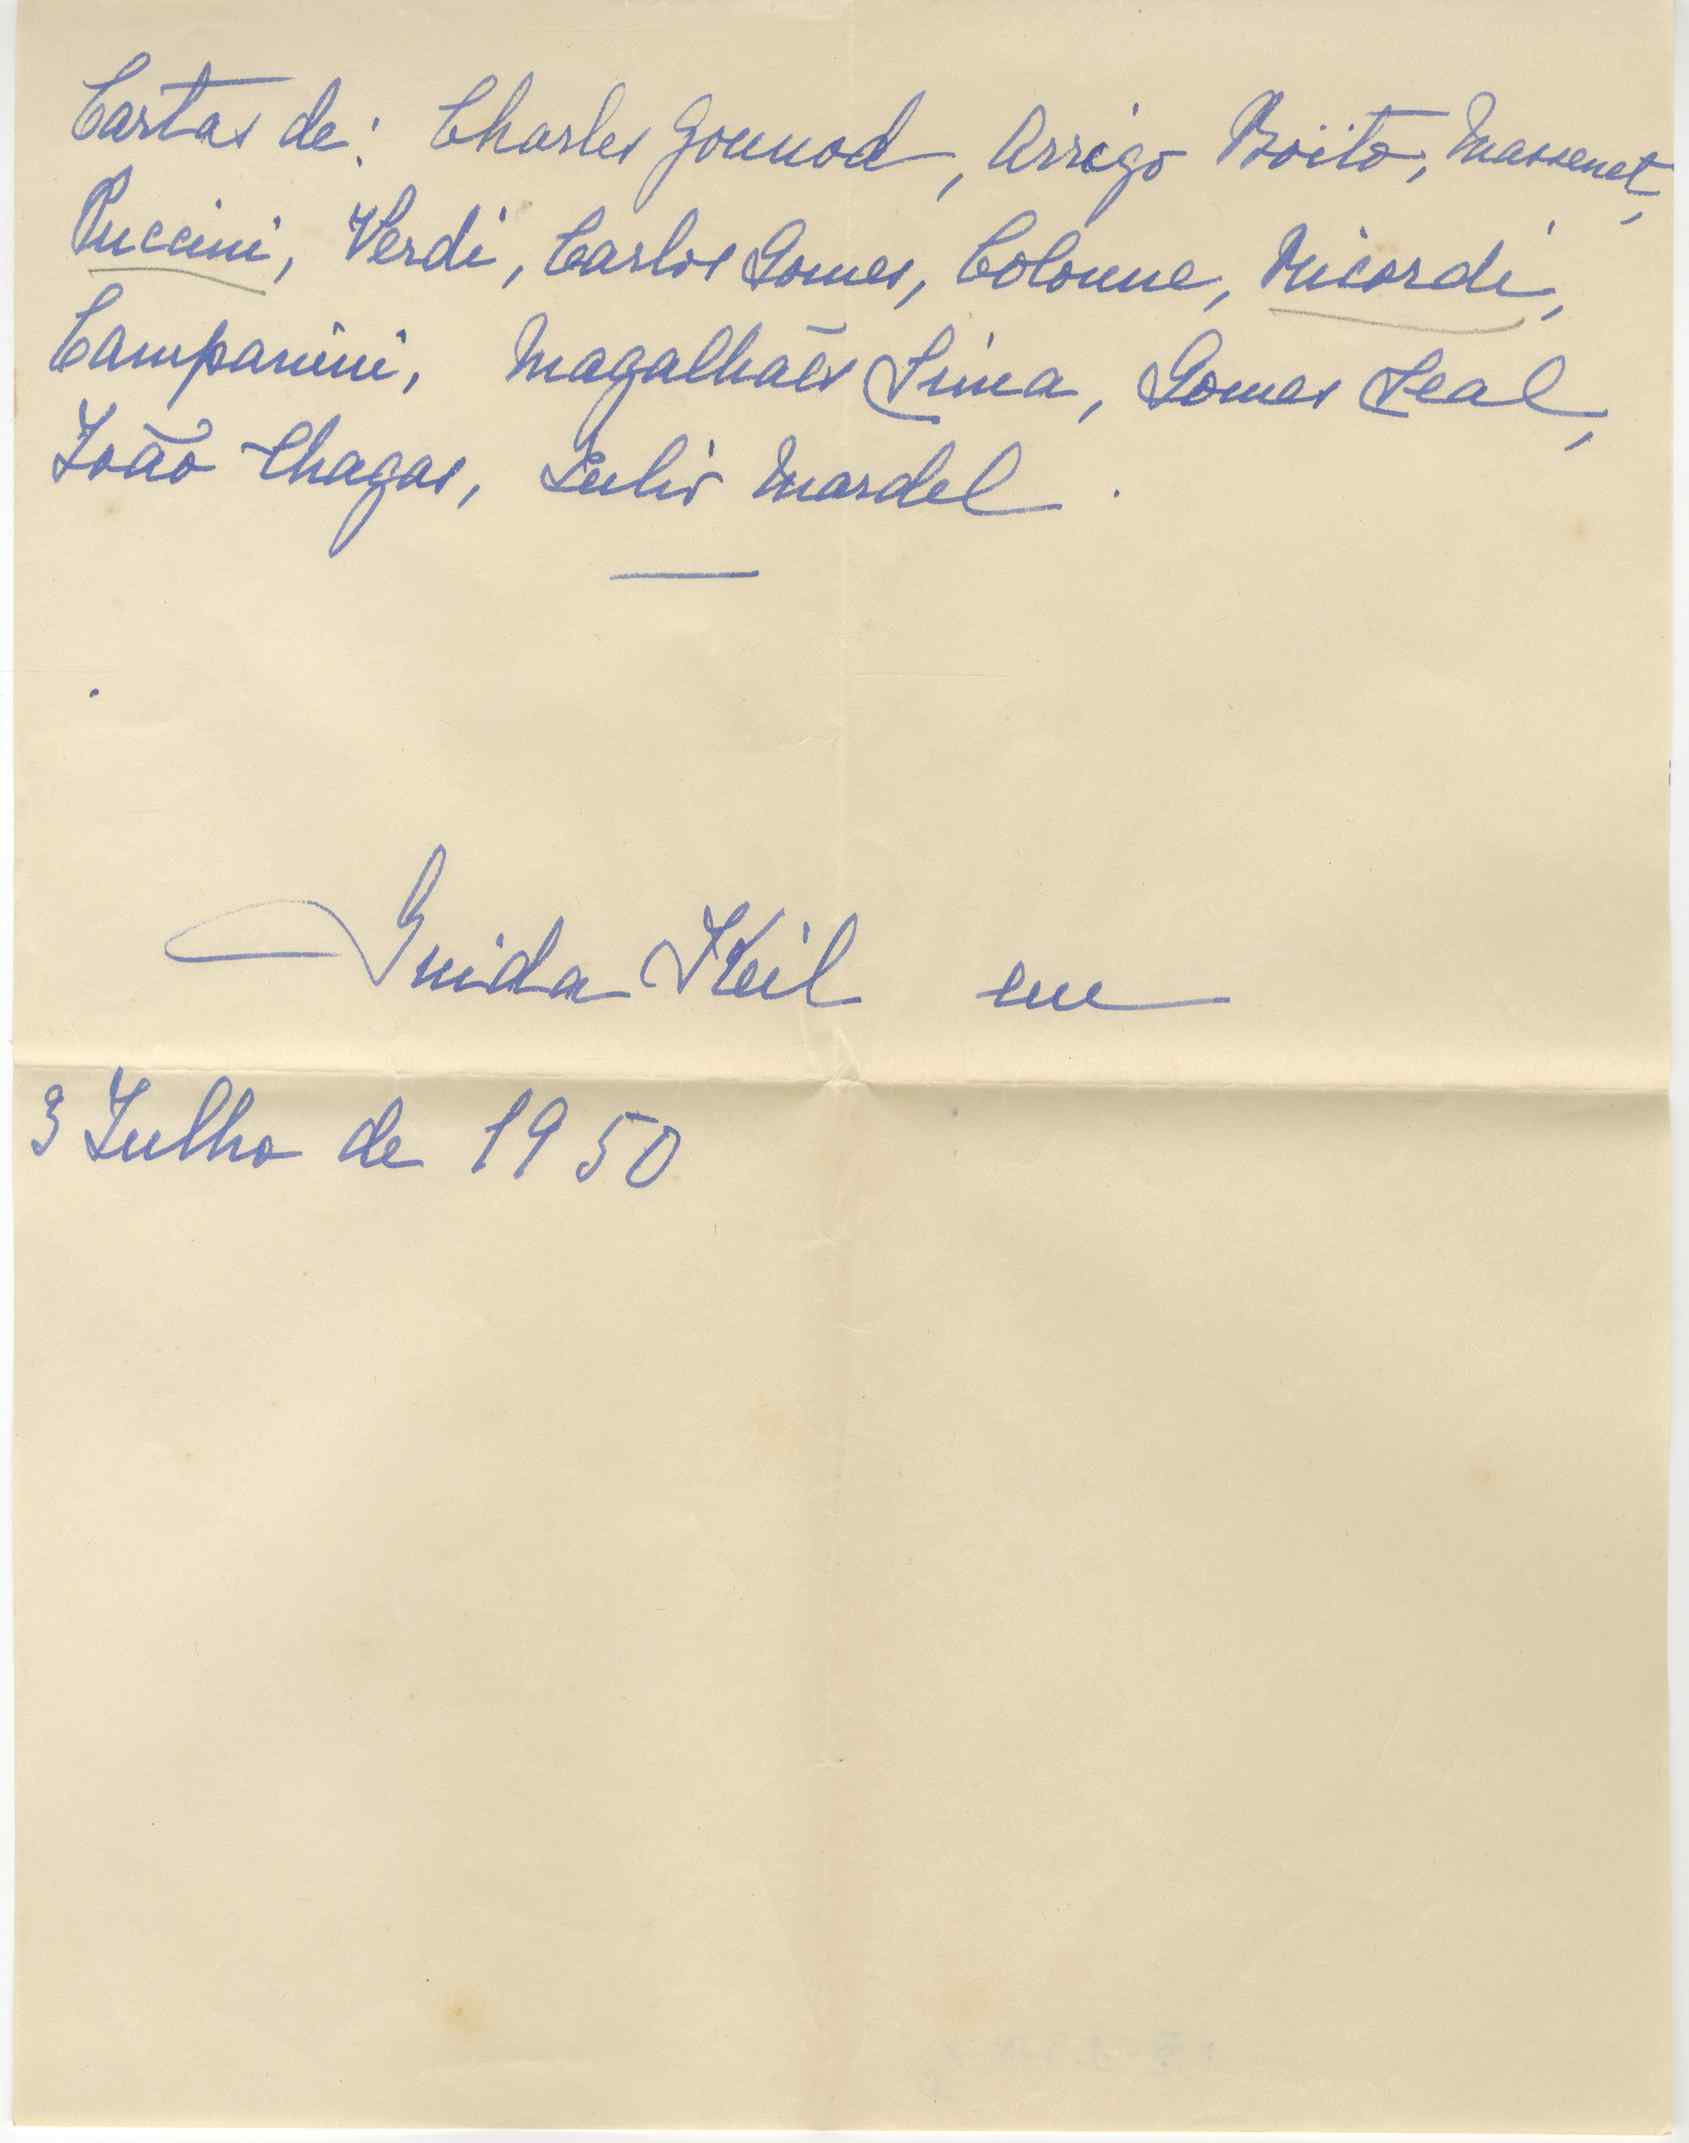 Cartas de: Charles Gounod, Arrigo Boïto, Massenet,
Puccini, Verdi, Carlos Gomes, Colonne, Ricordi,
Campanini, Magalhães Lima, Gomes Leal,
João Chagas, Julio Mardel.
Guida Keil em
3 Julho de 1950